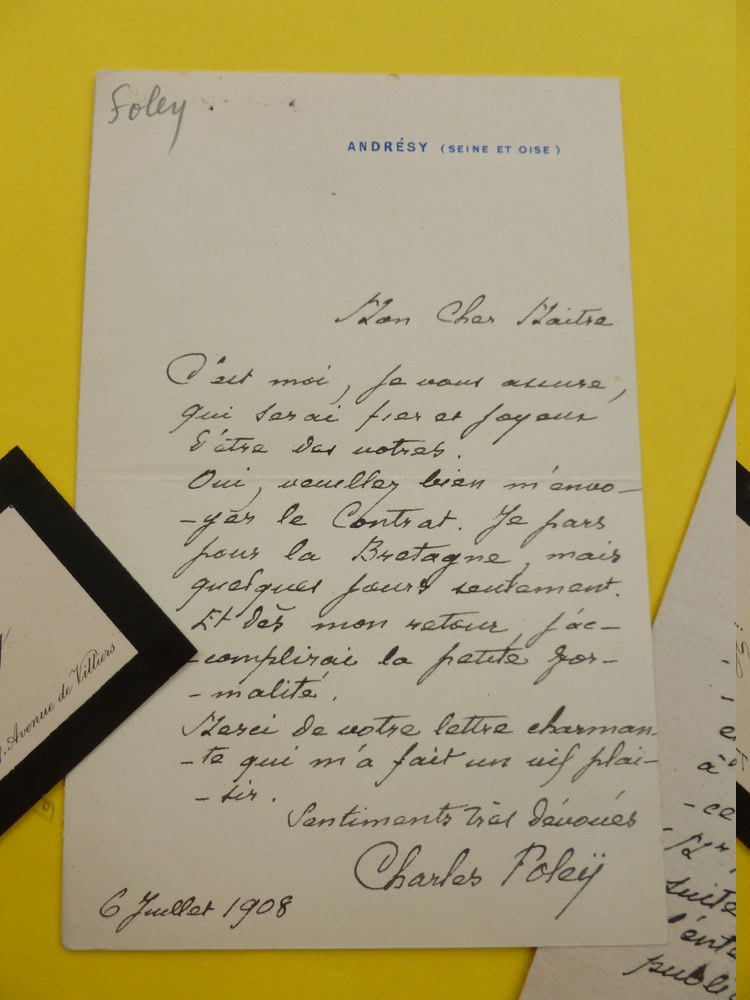 Foley
ANDRÉSY (SEINE ET OISE)
Mon Cher Maitre
C'est moi, je vous assure,
qui serai fier et joyeux
d'être des votres.
Oui, veuillez bien m'envo-
-yer le Contrat. Je pars
pour la Bretagne, mais
quelques jours seulement.
Et dès mon retour, j'ac-
-complirai la petite for-
-malité.
Merci de votre lettre charman-
-te qui m'a fait un vif plai-
-sir.
Sentiments très dévoués
Charles Foleÿ
6 Juillet 1908
Avenue de Villiers
à
-ce
suite
l'ent
publi